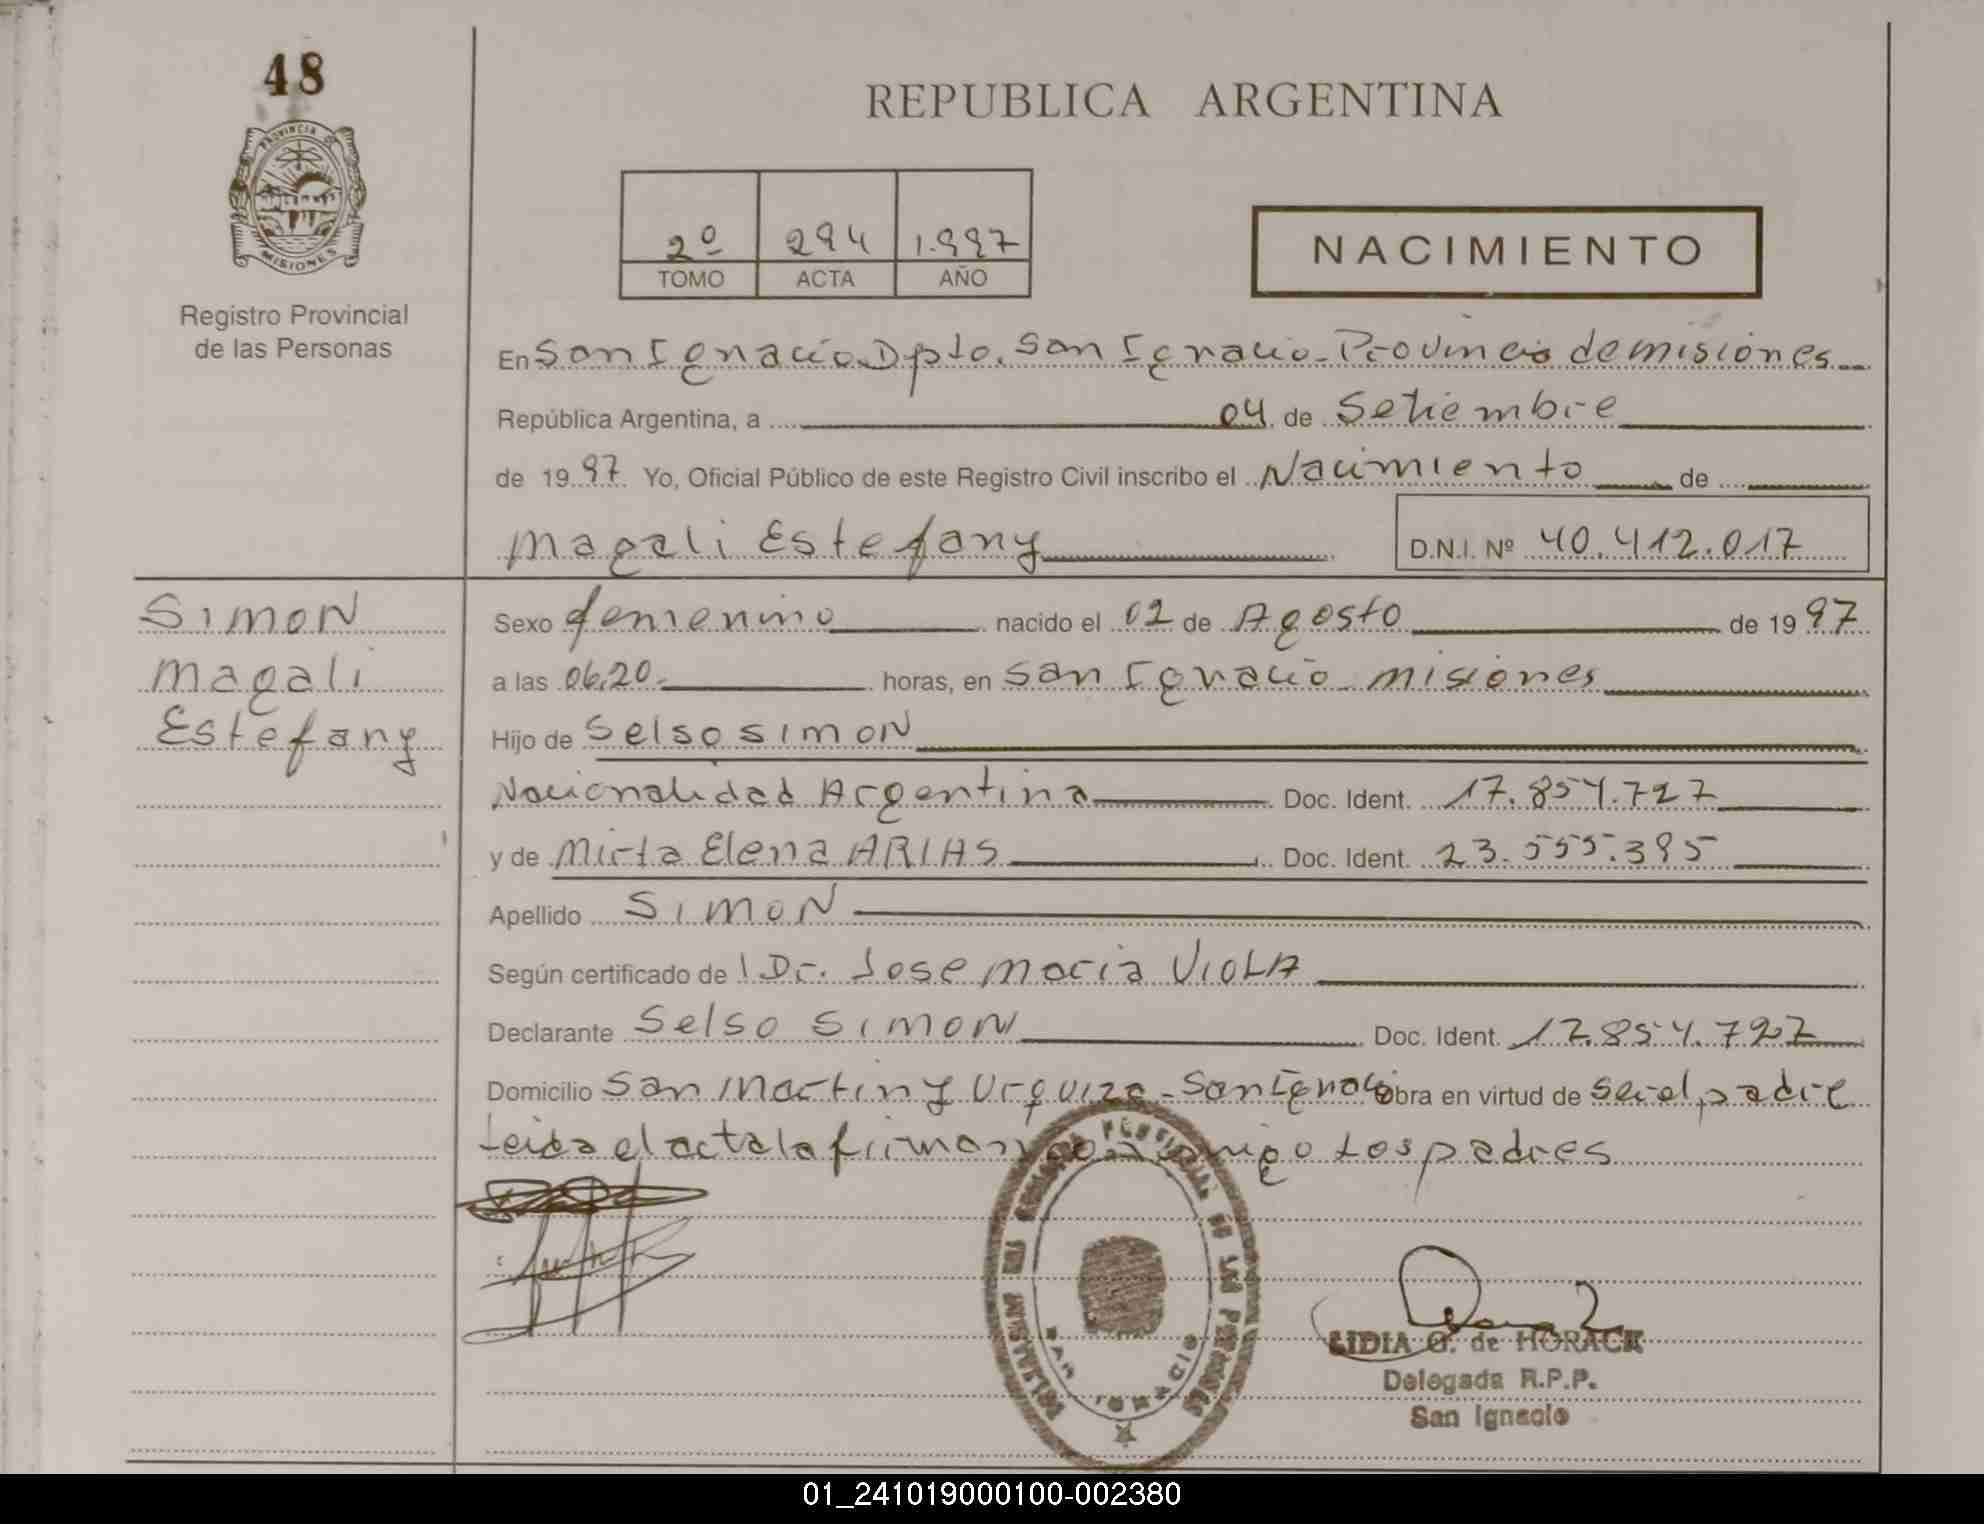 48
PROVINCIA DE
MISIONES
Registro Provincial
de las Personas
REPUBLICA ARGENTINA
2º 294 1.997
TOMO ACTA AÑO
NACIMIENTO
En San Ignacio Dpto. San Ignacio - Provincia de misiones
República Argentina, a 04 de Setiembre
de 1997 Yo, Oficial Público de este Registro Civil inscribo el Nacimiento de
Magali Estefany D.N.I. Nº 40.412.017
SIMON
Magali
Estefany
Sexo femenino nacido el 02 de Agosto de 1997
a las 06,20 horas, en San Ignacio misiones
Hijo de Selso SIMON
Nacionalidad Argentina Doc. Ident. 17.854.727
y de Mirta Elena ARIAS Doc. Ident. 23.555.395
Apellido SIMON
Según certificado de l Dr. Jose Maria VIOLA
Declarante Selso SIMON Doc. Ident. 17.854.727
Domicilio San Martin y Urquiza - San Ignacio obra en virtud de ser el padre
Leida el acta la firman conmigo Los padres
SAN IGNACIO
LIDIA G. de HORACK
Delegada R.P.P.
San Ignacio
01_241019000100-002380